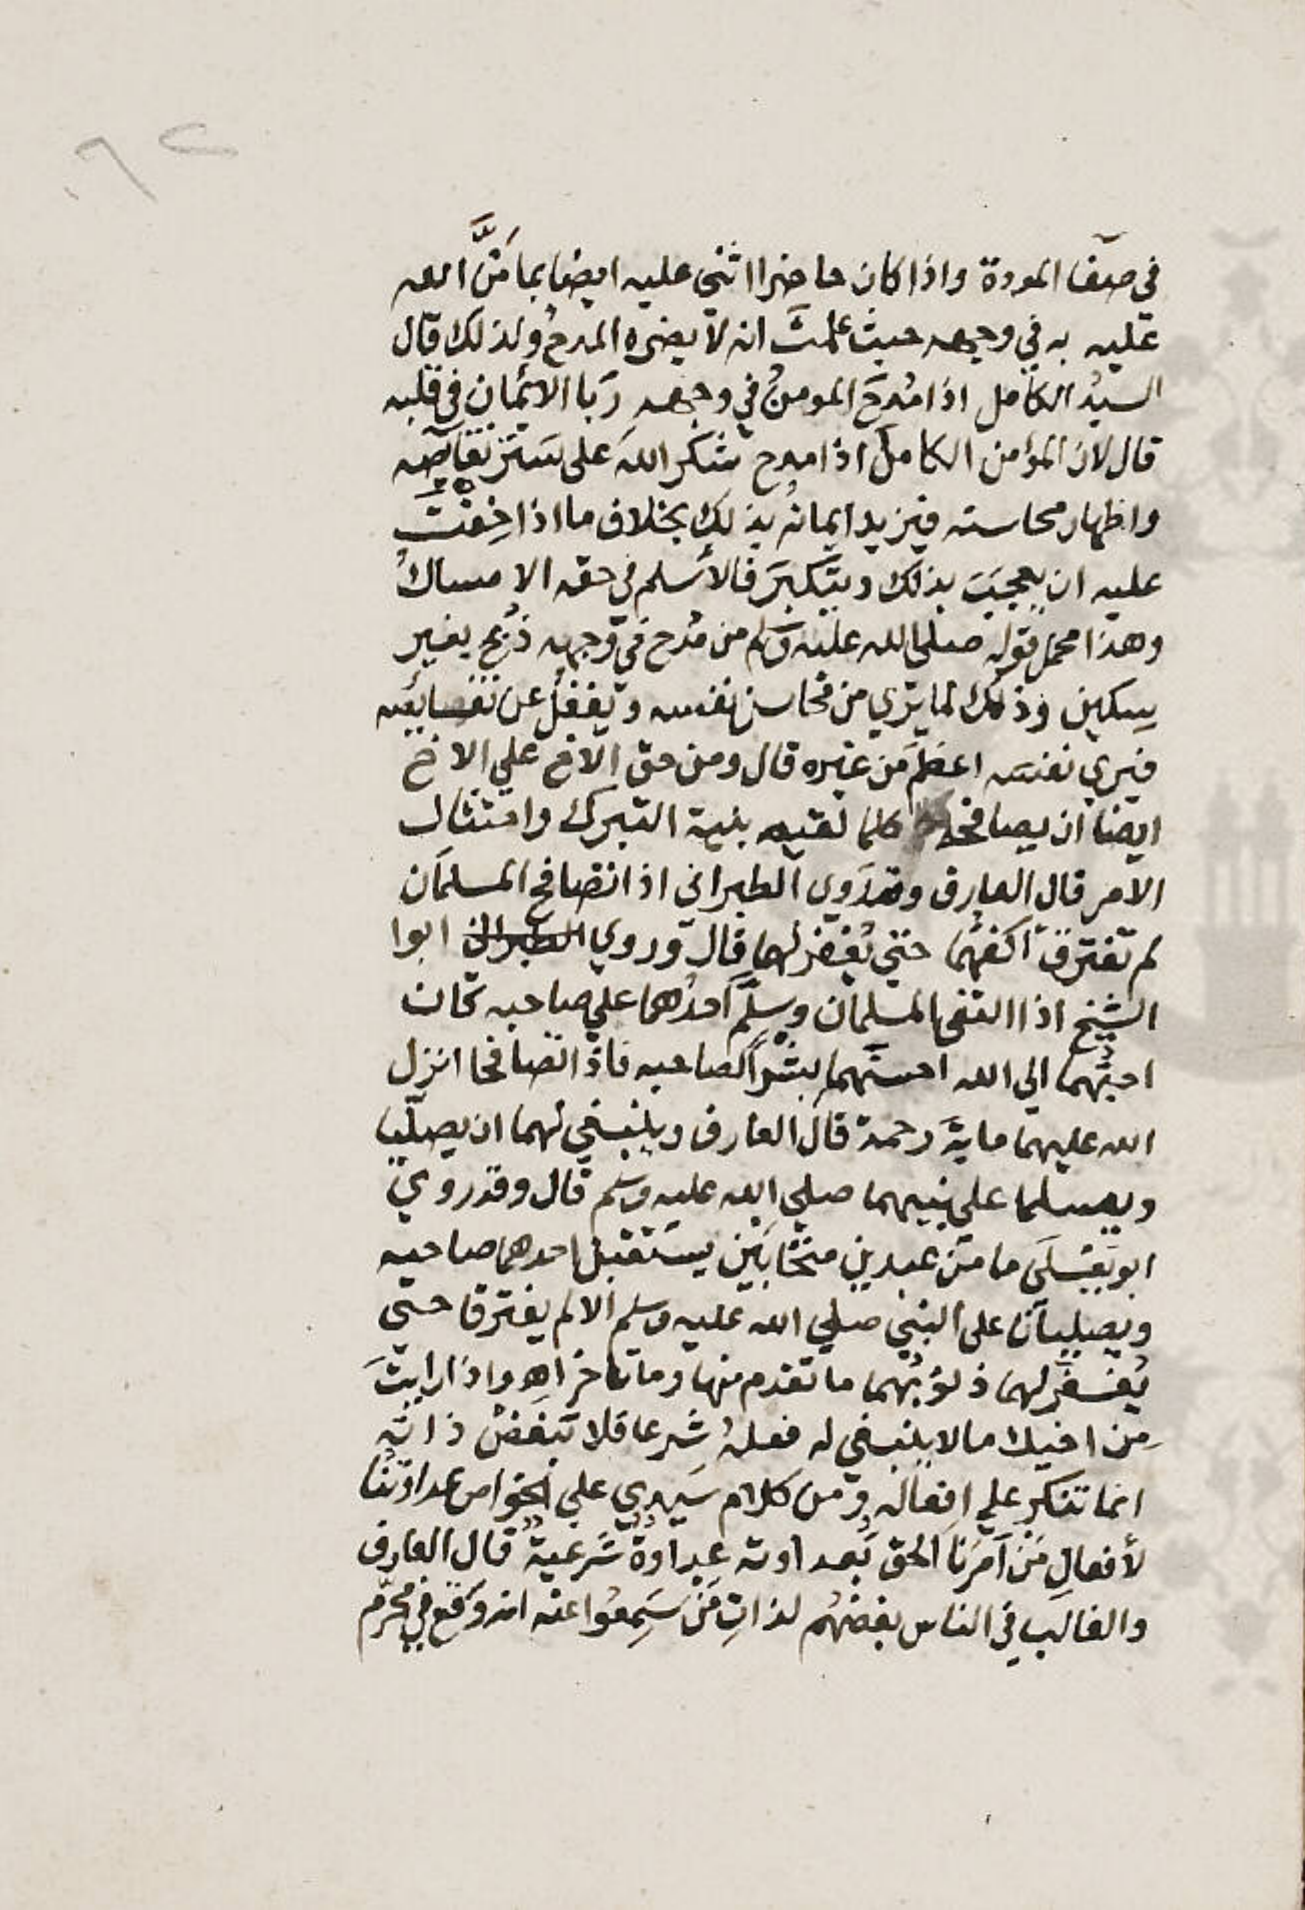 في صفا المودة واذا كان حاضرا اثني عليه ايضا بما مَنَّ الله
عليه به في وجهه حيث علمتَ انه لا يضره المدحُ ولذلك قال
السيدُ الكامل اذا مُدحَ المومنُ في وجهه رَبَا الائمان في قلبه
قال لان المؤمن الكامل اذا مدح شكر اللهَ على سَتر نقايصه
واظهار محاسنه فيزيد ايمانهُ بذلك بخلاف ما اذا خِفْتَ
عليه ان يعجبَ بذلك ويتكبرَ فالأسلم في حقه الامساكُ
وهذا محمل قوله صلي الله عليه وسلم من مُدح في وجهه ذُبح بغير
سكين وذلك لما يري من محاسن نفسه ويغفلُ عن نقسايصه
فيري نفسه اعظمَ من غيره قال ومن حق الاخ علي الاخ
ايضا ان يصافحه كلما لقيه بنية التبرك وامتثال
الامر قال العارف وقد رَوي الطبراني اذا تصافح المسلمان
لم تفترق اكفهُما حتي يُغفر لهما قال وروي الطبراني ابوا
الشيخ اذا التقي المسلمان وسلَّم احدُهما علي صاحبه كان
احبُّهما الي الله احسنَهما بشراً لصاحبه فاذا تصافحا انزل
الله عليهما مايةَ رحمة قال العارف وينبغي لهما ان يصلّيا
ويسلما علي نبيهما صلي الله عليه وسلم قال وقد روي
ابو يَعْلَي ما من عبدين متحابَين يستقبل احدهما صاحبه
ويصليان علي النبي صلي الله عليه وسلم الا لم يفترقا حتي
يُغفرَ لهما ذنوبُهما ما تقدم منها وما تاخر اهـ واذا رايتَ
من اخيك ما لا ينبغي له فعلهُ شرعا فلا تبغضْ ذاته
انما تنكر علي افعاله ومن كلام سَيدي علي الخواص عداوتنا
لأفعالِ مَنْ اَمَرَنا الحق بَعداوته عداوةٌ شَرعيةٌ قال العارف
والغالب في الناس بغضُهُم لذاتِ مَنْ سَمِعُوا عنه انه وَقع في محرّم